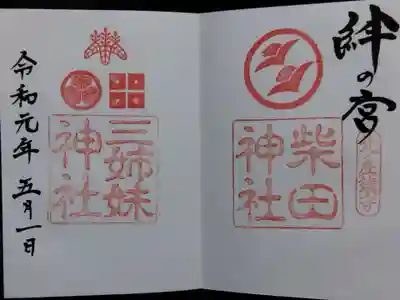 絆の宮
柴田
神社
三姉妹
神社
令和元年 五月一日